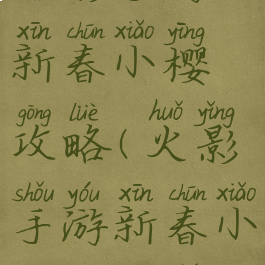 xīn chūn xiǎo yīng
新春小樱
gōng lüè huǒ yǐng
攻略(火影
shǒu yóu xīn chūn xiǎo
手游新春小